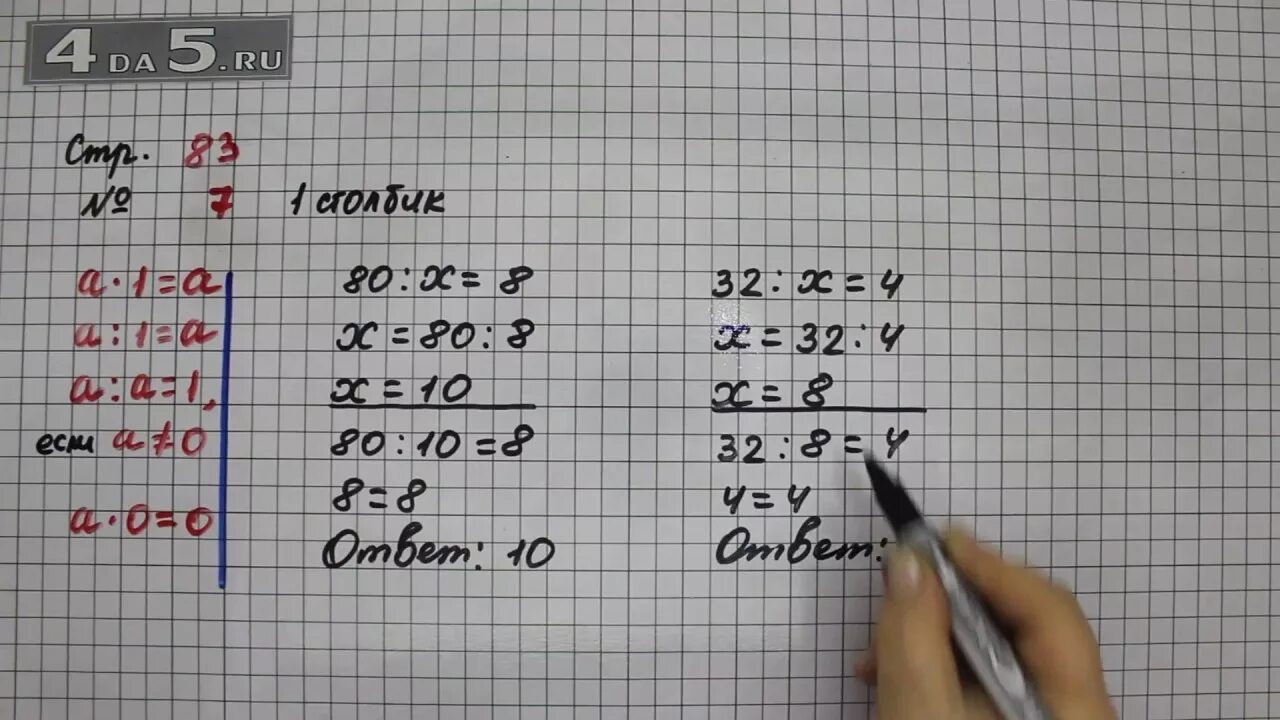 4DA5.RU
Стр. 83
№ 7 1 столбик
a·1=a
a:1=a
a:a=1,
если a≠0
a·0=0
80:x=8
x=80:8
x=10
80:10=8
8=8
Ответ: 10
32:x=4
x=32:4
x=8
32:8=4
4=4
Ответ: